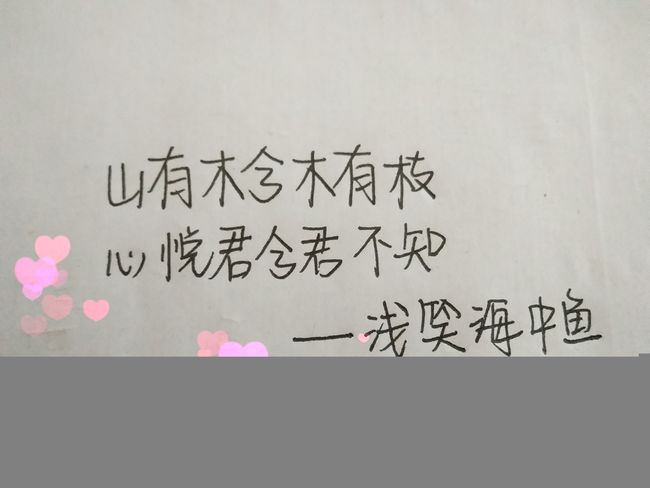 山有木兮木有枝
心悦君兮君不知
——浅笑海中鱼